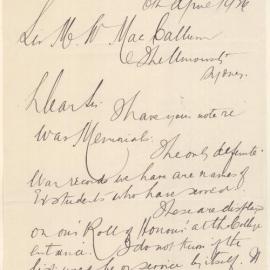 6th April 1926
Sir M. W. MacCallum
The University
Sydney.
Dear Sir
I have your note re
War Memorial.
The only definite
War records we have are names of
Ex students who have served.
These are
on our 'Roll of Honour' at the College
entrance. I do not think the
be of service by itself.